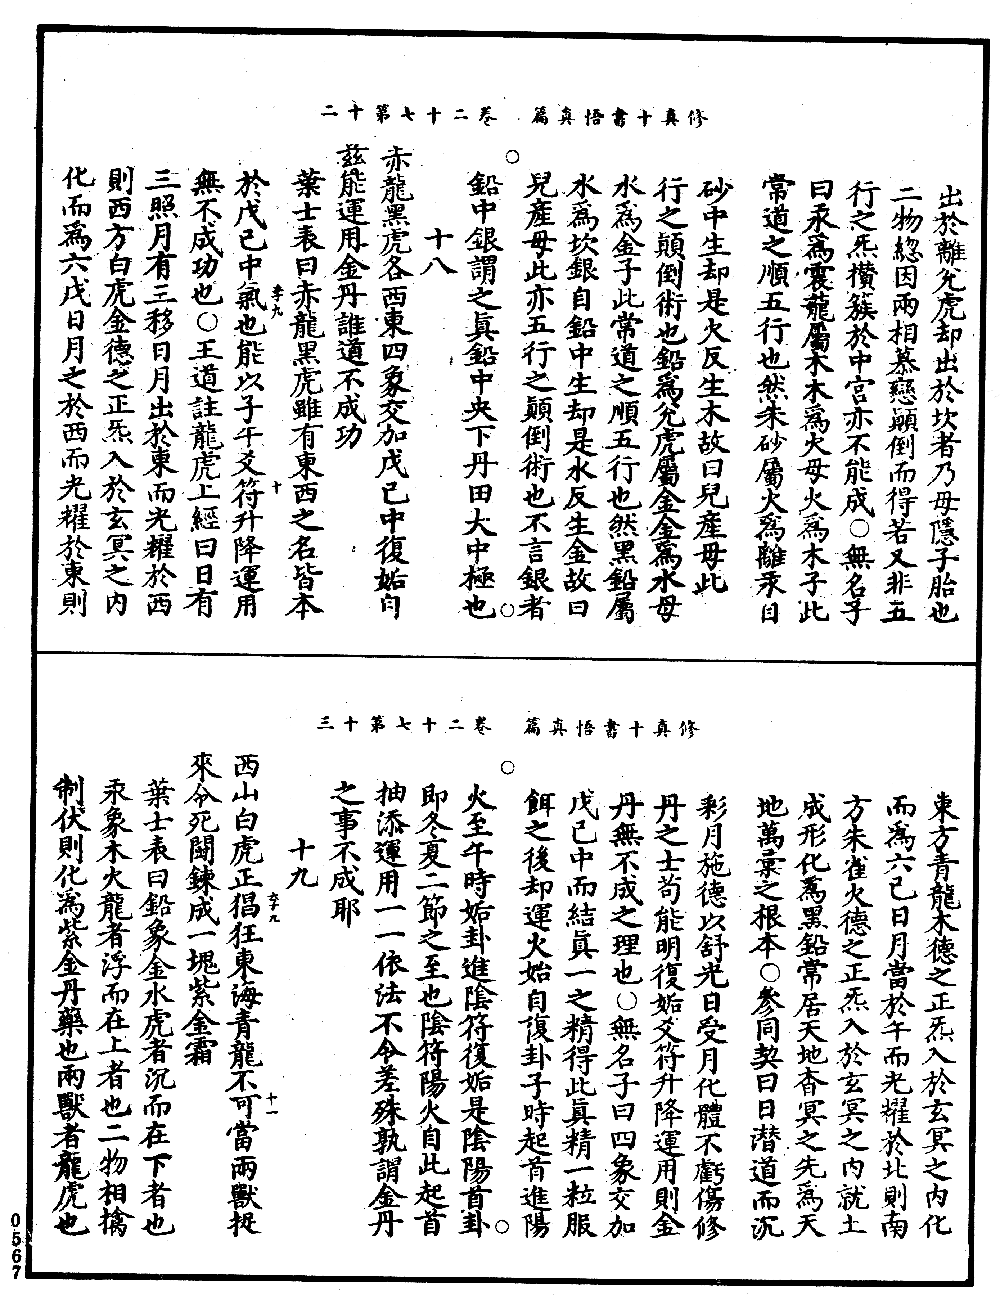 修真十書悟真篇　卷二十七第十二
出於離兊虎却出於坎者乃母隱子胎也
二物緫因兩相慕戀顚倒而得若又非五
行之炁攅簇於中宮亦不能成○無名子
曰汞爲震龍屬木木爲火母火爲木子此
常道之順五行也然朱砂屬火爲離汞自
砂中生却是火反生木故曰兒產母此
行之顚倒術也鉛爲兊虎屬金金爲水母
水爲金子此常道之順五行也然黑鉛屬
水爲坎銀自鉛中生却是水反生金故曰
兒產母此亦五行之顚倒術也不言銀者
鉛中銀謂之眞鉛中央下丹田大中極也
十八
赤龍黑虎各西東四象交加戊己中復姤自
茲能運用金丹誰道不成功
葉士表曰赤龍黑虎雖有東西之名皆本
於戊己中氣也能以子午爻符升降運用
李九
十
無不成功也○王道註龍虎上經曰日有
三照月有三移日月出於東而光耀於西
則西方白虎金德之正炁入於玄冥之內
化而爲六戊日月之於西而光耀於東則
修真十書悟真篇　卷二十七第十三
東方青龍木德之正炁入於玄冥之內化
而爲六己日月當於午而光耀於北則南
方朱雀火德之正炁入於玄冥之內就土
成形化爲黑鉛常居天地杳冥之先爲天
地萬彙之根本○參同契曰日潛道而沉
彩月施德以舒光日受月化體不虧傷修
丹之士苟能明復姤爻符升降運用則金
丹無不成之理也○無名子曰四象交加
戊己中而結眞一之精得此眞精一粒服
餌之後却運火始自復卦子時起首進陽
火至午時姤卦進陰符復姤是陰陽首卦
即冬夏二節之至也陰符陽火自此起首
抽添運用一一依法不令差殊孰謂金丹
之事不成耶
十九
西山白虎正猖狂東海青龍不可當兩獸捉
李九
十一
來令死鬪鍊成一塊紫金霜
葉士表曰鉛象金水虎者沉而在下者也
汞象木火龍者浮而在上者也二物相擒
制伏則化爲紫金丹藥也兩獸者龍虎也
0567